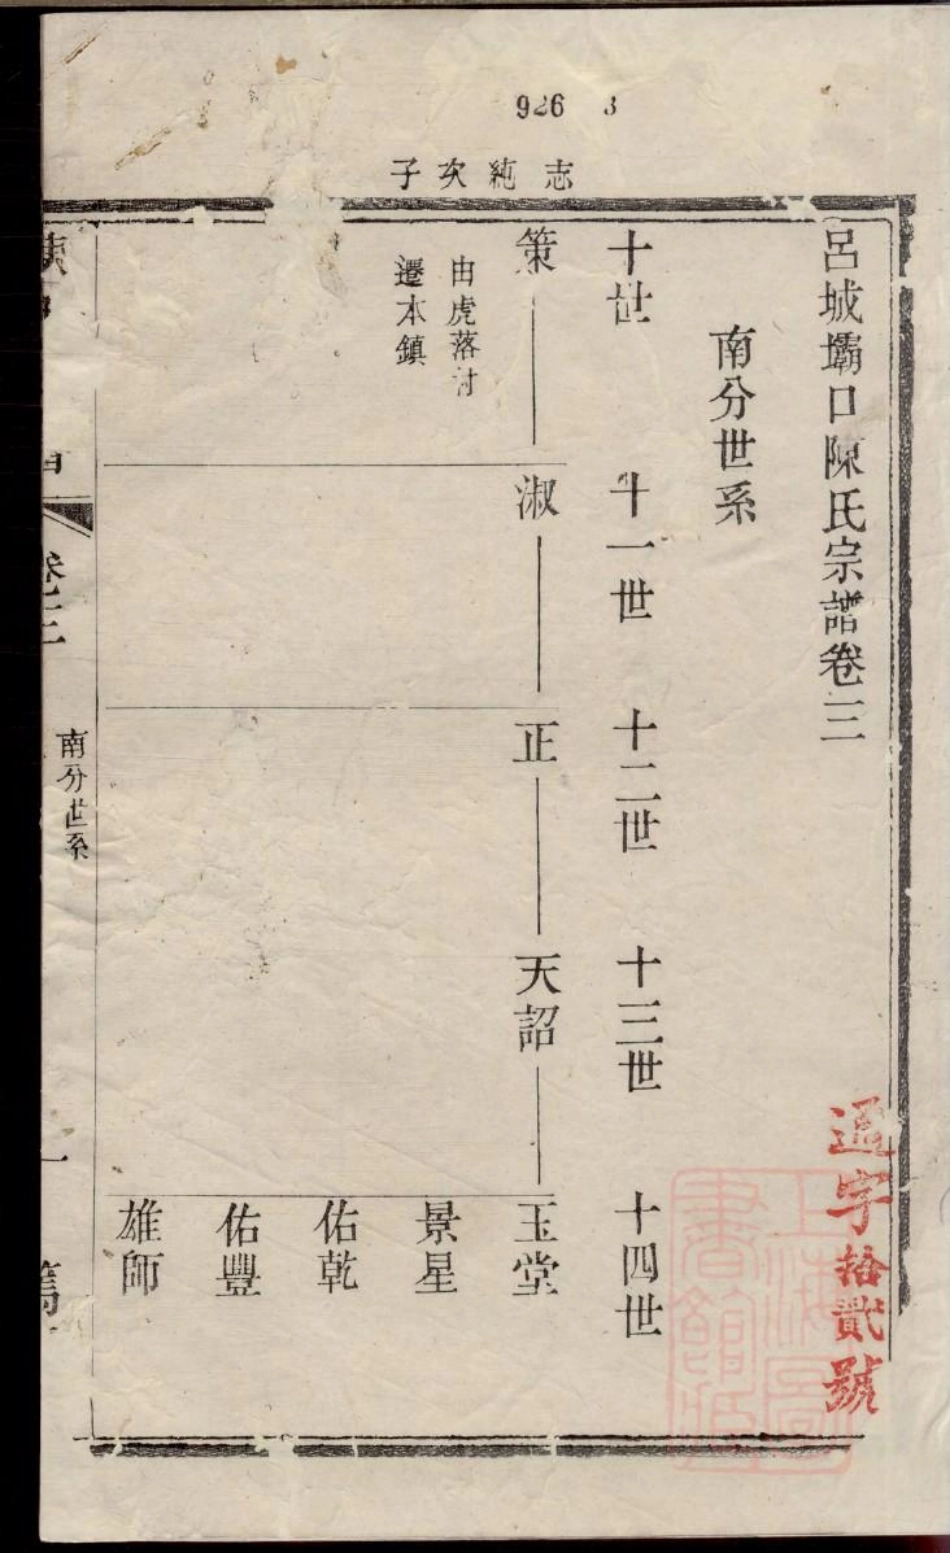 926 3
志純次子
呂城壩口陳氏宗譜卷三
通字拾貳號
上海圖
書館藏
南分世系
十世
十一世
十二世
十三世
十四世
策
淑
正
天詔
玉堂
由虎落村
遷本鎮
景星
佑乾
佑豐
雄師
卷三
南分世系
一